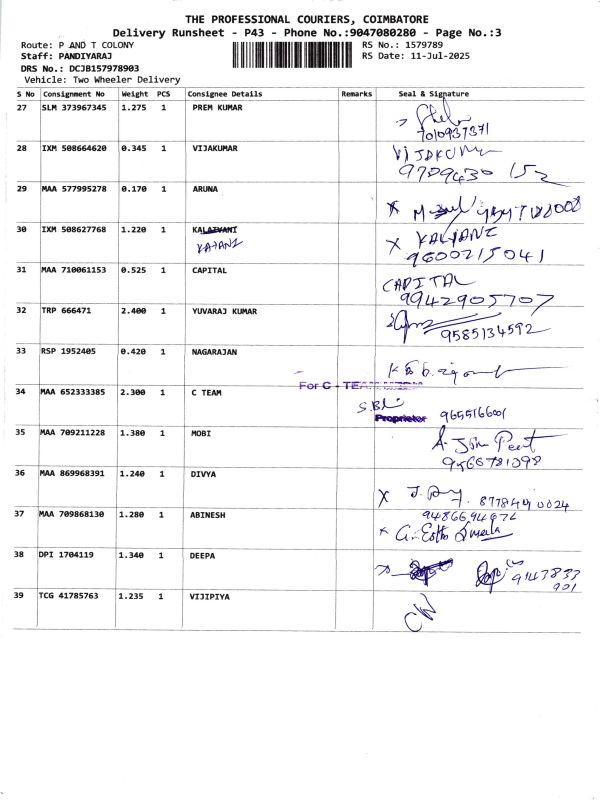 THE PROFESSIONAL COURIERS, COIMBATORE
Delivery Runsheet - P43 - Phone No.:9047080280 - Page No.:3
Route: P AND T COLONY
RS No.: 1579789
Staff: PANDIYARAJ
RS Date: 11-Jul-2025
DRS No.: DCJB157978903
Vehicle: Two Wheeler Delivery
S No Consignment No Weight PCS Consignee Details Remarks Seal & Signature
27 SLM 373967345 1.275 1 PREM KUMAR
7010937371
28 IXM 508664620 0.345 1 VIJAKUMAR VIJAKUMAR
9709430 152
29 MAA 577995278 0.170 1 ARUNA
30 IXM 508627768 1.220 1 KALAIVANI X KALYANI
9600215041
31 MAA 710061153 0.525 1 CAPITAL CAPITAL
99942905707
32 TRP 666471 2.400 1 YUVARAJ KUMAR
9585134592
33 RSP 1952405 0.420 1 NAGARAJAN
For C - TEAM
34 MAA 652333385 2.300 1 C TEAM
Proprietor 9655166001
35 MAA 709211228 1.380 1 MOBI
9566781098
36 MAA 869968391 1.240 1 DIVYA X
8778490024
37 MAA 709868130 1.280 1 ABINESH
9486694672
38 DPI 1704119 1.340 1 DEEPA
9147833
901
39 TCG 41785763 1.235 1 VIJIPIYA
CW